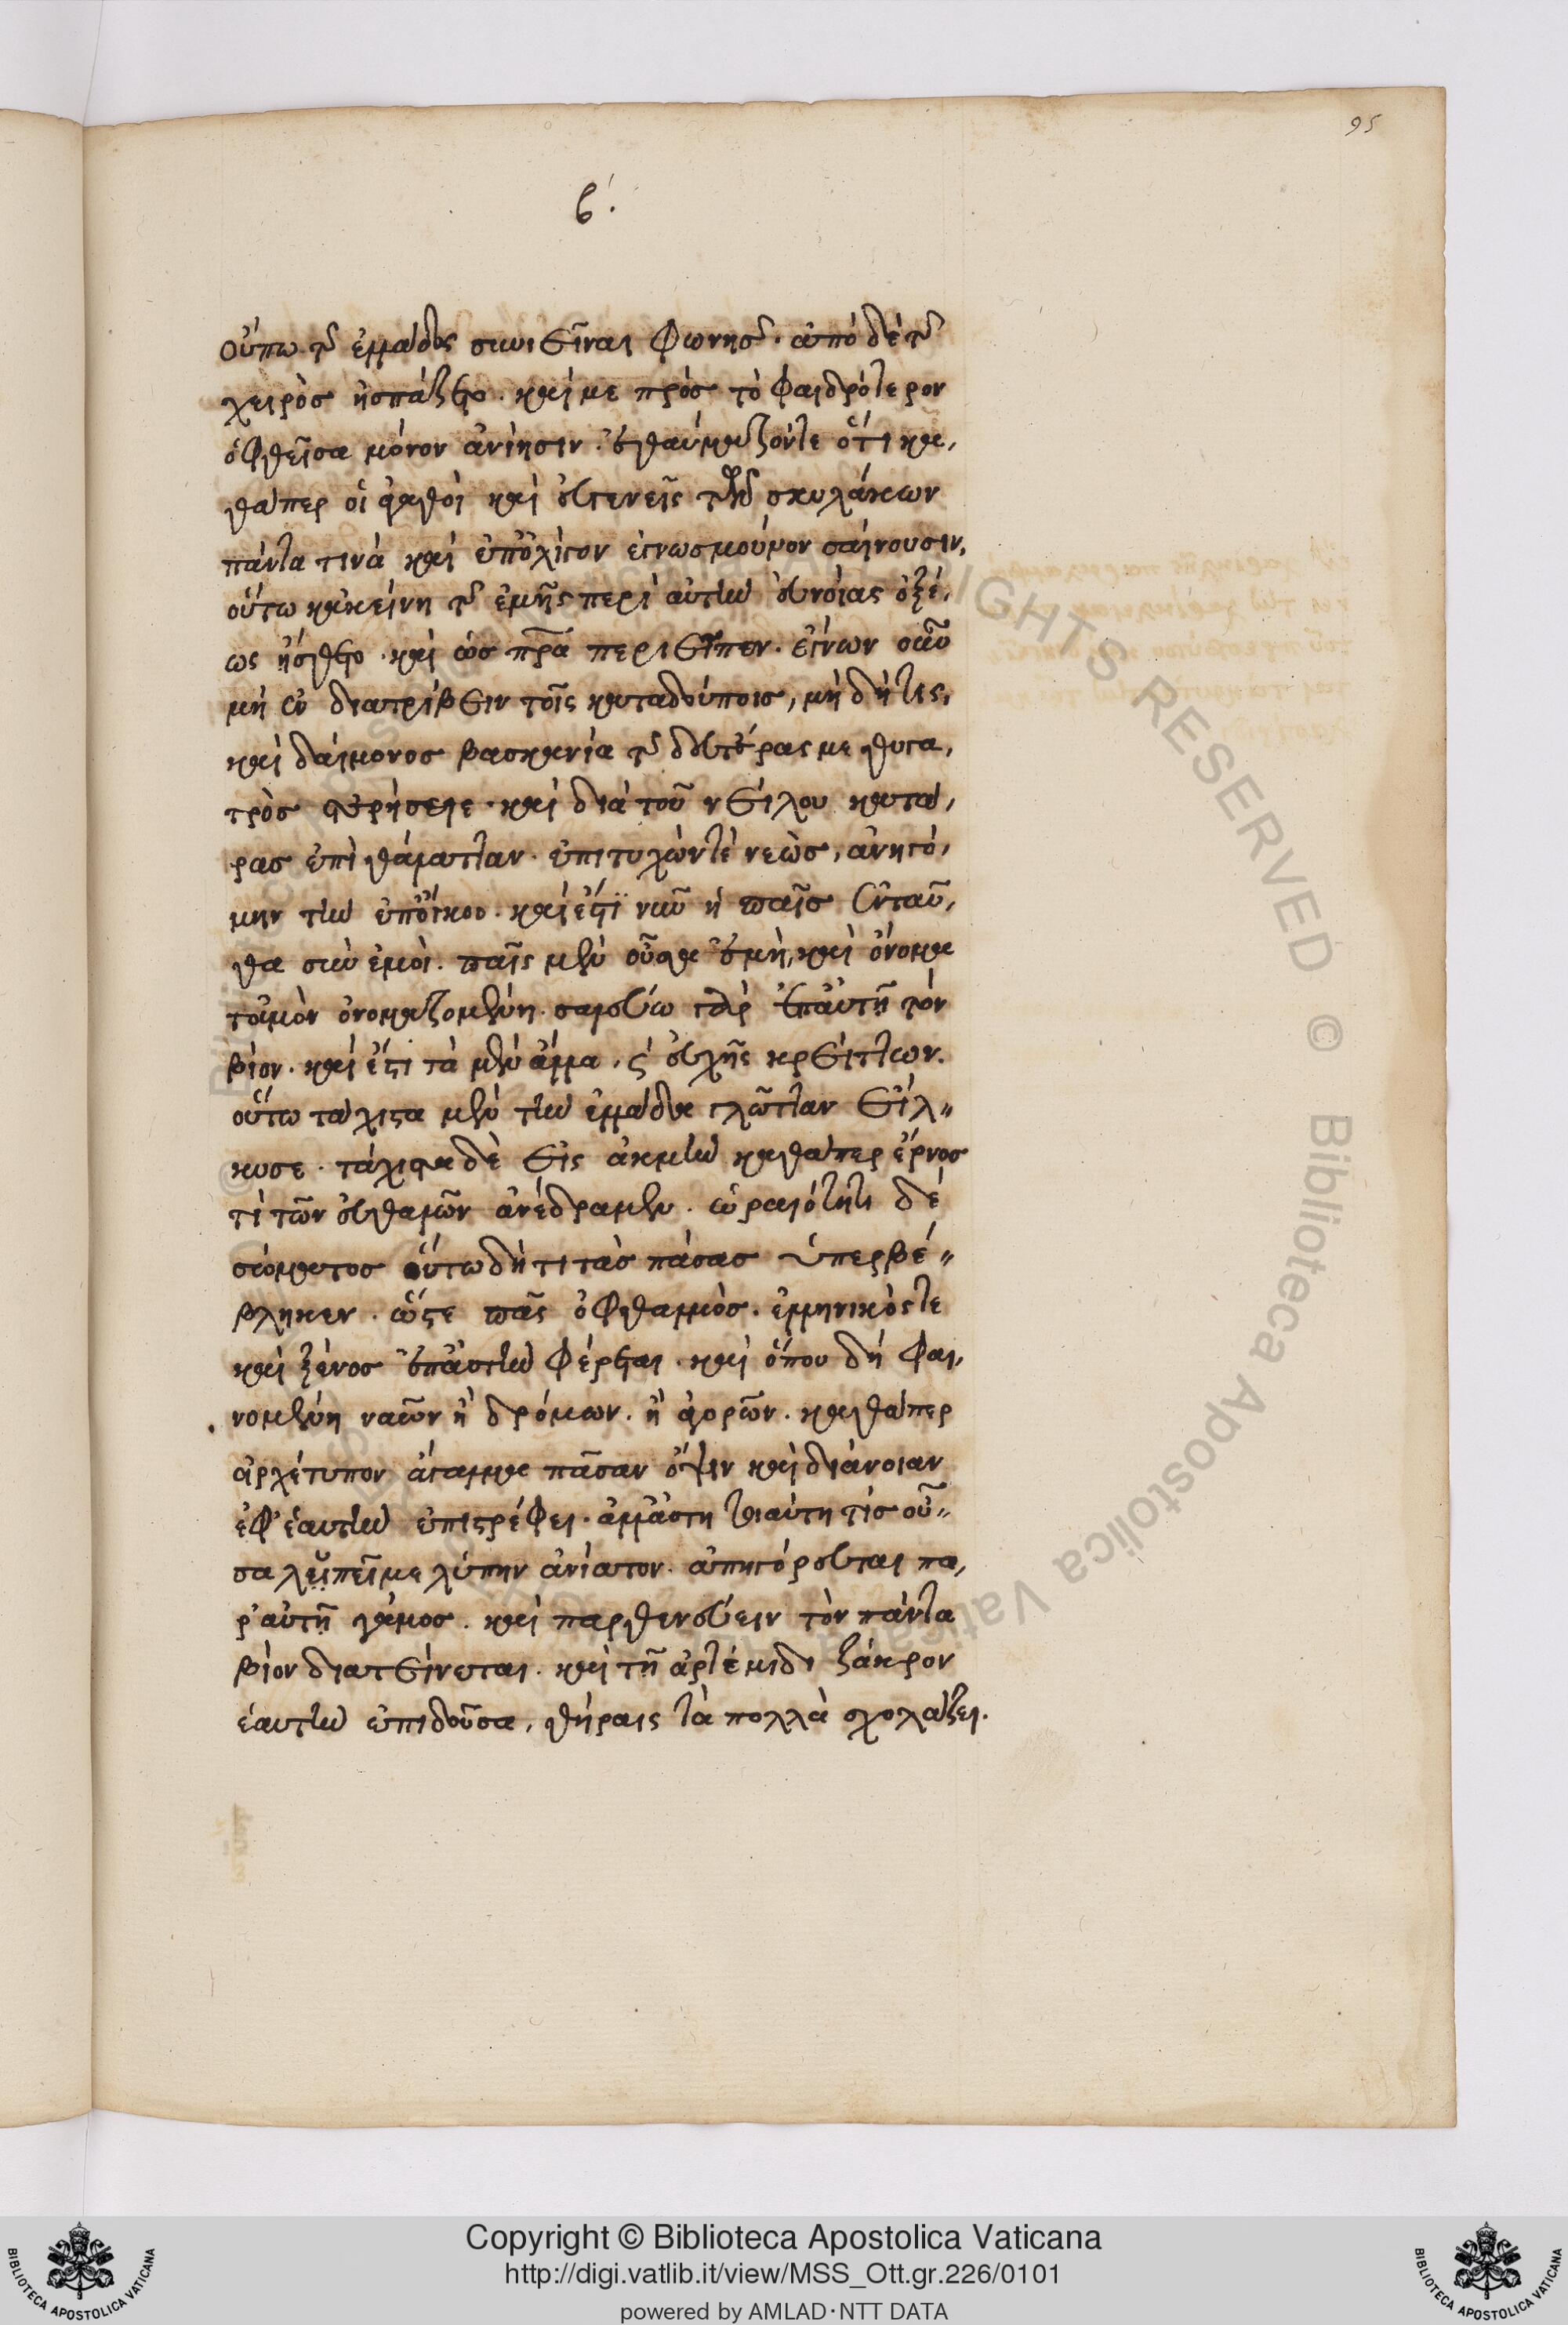 95
β′.
Οὔπω τῆς ἑλλάδος συνιεῖναι φωνῆς. ἀπὸ δὲ τῆς
χειρὸς ἠσπάζετο. καί με πρὸς τὸ φαιδρότερον
ὀφθεῖσα μόνον ἀνίησιν. ἐθαύμαζόν τε ὅτι κα,
θάπερ οἱ ἀγαθοὶ καὶ εὐγενεῖς τῶν σκυλάκων
πάντα τινὰ καὶ ἐπ' ὀλίγον ἐγνωσμένον σαίνουσιν,
οὕτω κἀκείνη τῆς ἐμῆς περὶ αὐτὴν εὐνοίας ὀξέ,
ως ᾔσθετο. καὶ ὡς πρα περιεῖπεν. ἔγνων οὖν
μὴ ἐν διατρίβειν τοῖς καταδούποις, μὴ δή τις,
καὶ δαίμονος βασκανία τῆς δευτέρας με θυγα,
τρὸς στερήσειε. καὶ διὰ τοῦ νείλου κατά,
ρας ἐπὶ θάλατταν. ἐπιτυχών τε νεὼς, ἀνηγό,
μην τὴν ἐπ' οἴκου. καὶ ἔστι νῦν ἡ παῖς ἐνταῦ,
θα σὺν ἐμοὶ. παῖς μὲν οὖσα ἐμὴ, καὶ ὄνομα
τοὐμὸν ὀνομαζομένη. σαλεύω γὰρ ἐπ' αὐτῇ τὸν
βίον. καὶ ἔστι τὰ μὲν ἄλλα, καὶ εὐχῆς κρείττων.
οὕτω τάχιστα μὲν τὴν ἑλλάδα γλῶτταν εἵλ"
κυσε. τάχιστα δὲ εἰς ἀκμὴν καθάπερ ἔρνος
τὶ τῶν εὐθαλῶν ἀνέδραμεν. ὡραιότητι δὲ
σώματος οὕτω δή τι τὰς πάσας ὑπερβέ"
βληκεν. ὥστε πᾶς ὀφθαλμὸς. ἑλληνικός τε
καὶ ξένος ἐπ' αὐτὴν φέρεται. καὶ ὅπου δὴ φαι,
νομένη ναῶν ἢ δρόμων. ἢ ἀγορῶν. καθάπερ
ἀρχέτυπον ἄγαλμα πᾶσαν ὄψιν καὶ διάνοιαν
ἐφ' ἑαυτὴν ἐπιστρέφει. ἀλλ' αὕτη τοιαύτη τὶς οὖ"
σα λυπεῖ με λύπην ἀνίατον. ἀπηγόρευται πα,
ρ' αὐτῇ γάμος. καὶ παρθενεύειν τὸν πάντα
βίον διατείνεται. καὶ τῇ ἀρτέμιδι ζάκρον
ἑαυτὴν ἐπιδοῦσα, θήραις τὰ πολλὰ σχολάζει.
Copyright © Biblioteca Apostolica Vaticana
http://digi.vatlib.it/view/MSS_Ott.gr.226/0101
powered by AMLAD·NTT DATA